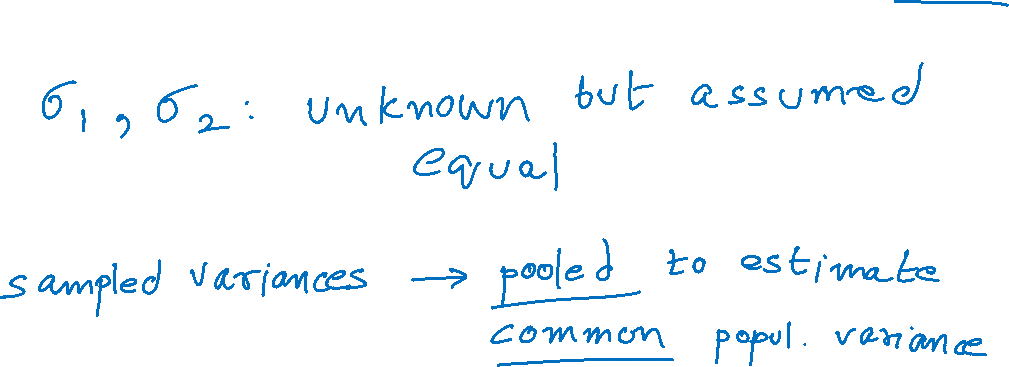 σ₁, σ₂: unknown but assumed
equal
sampled variances → pooled to estimate
common popul. variance